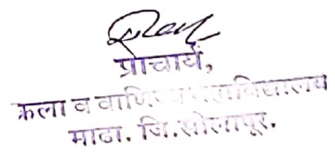 प्राचार्य,
कला व वाणिज्य महाविद्यालय
माढा. जि.सोलापूर.